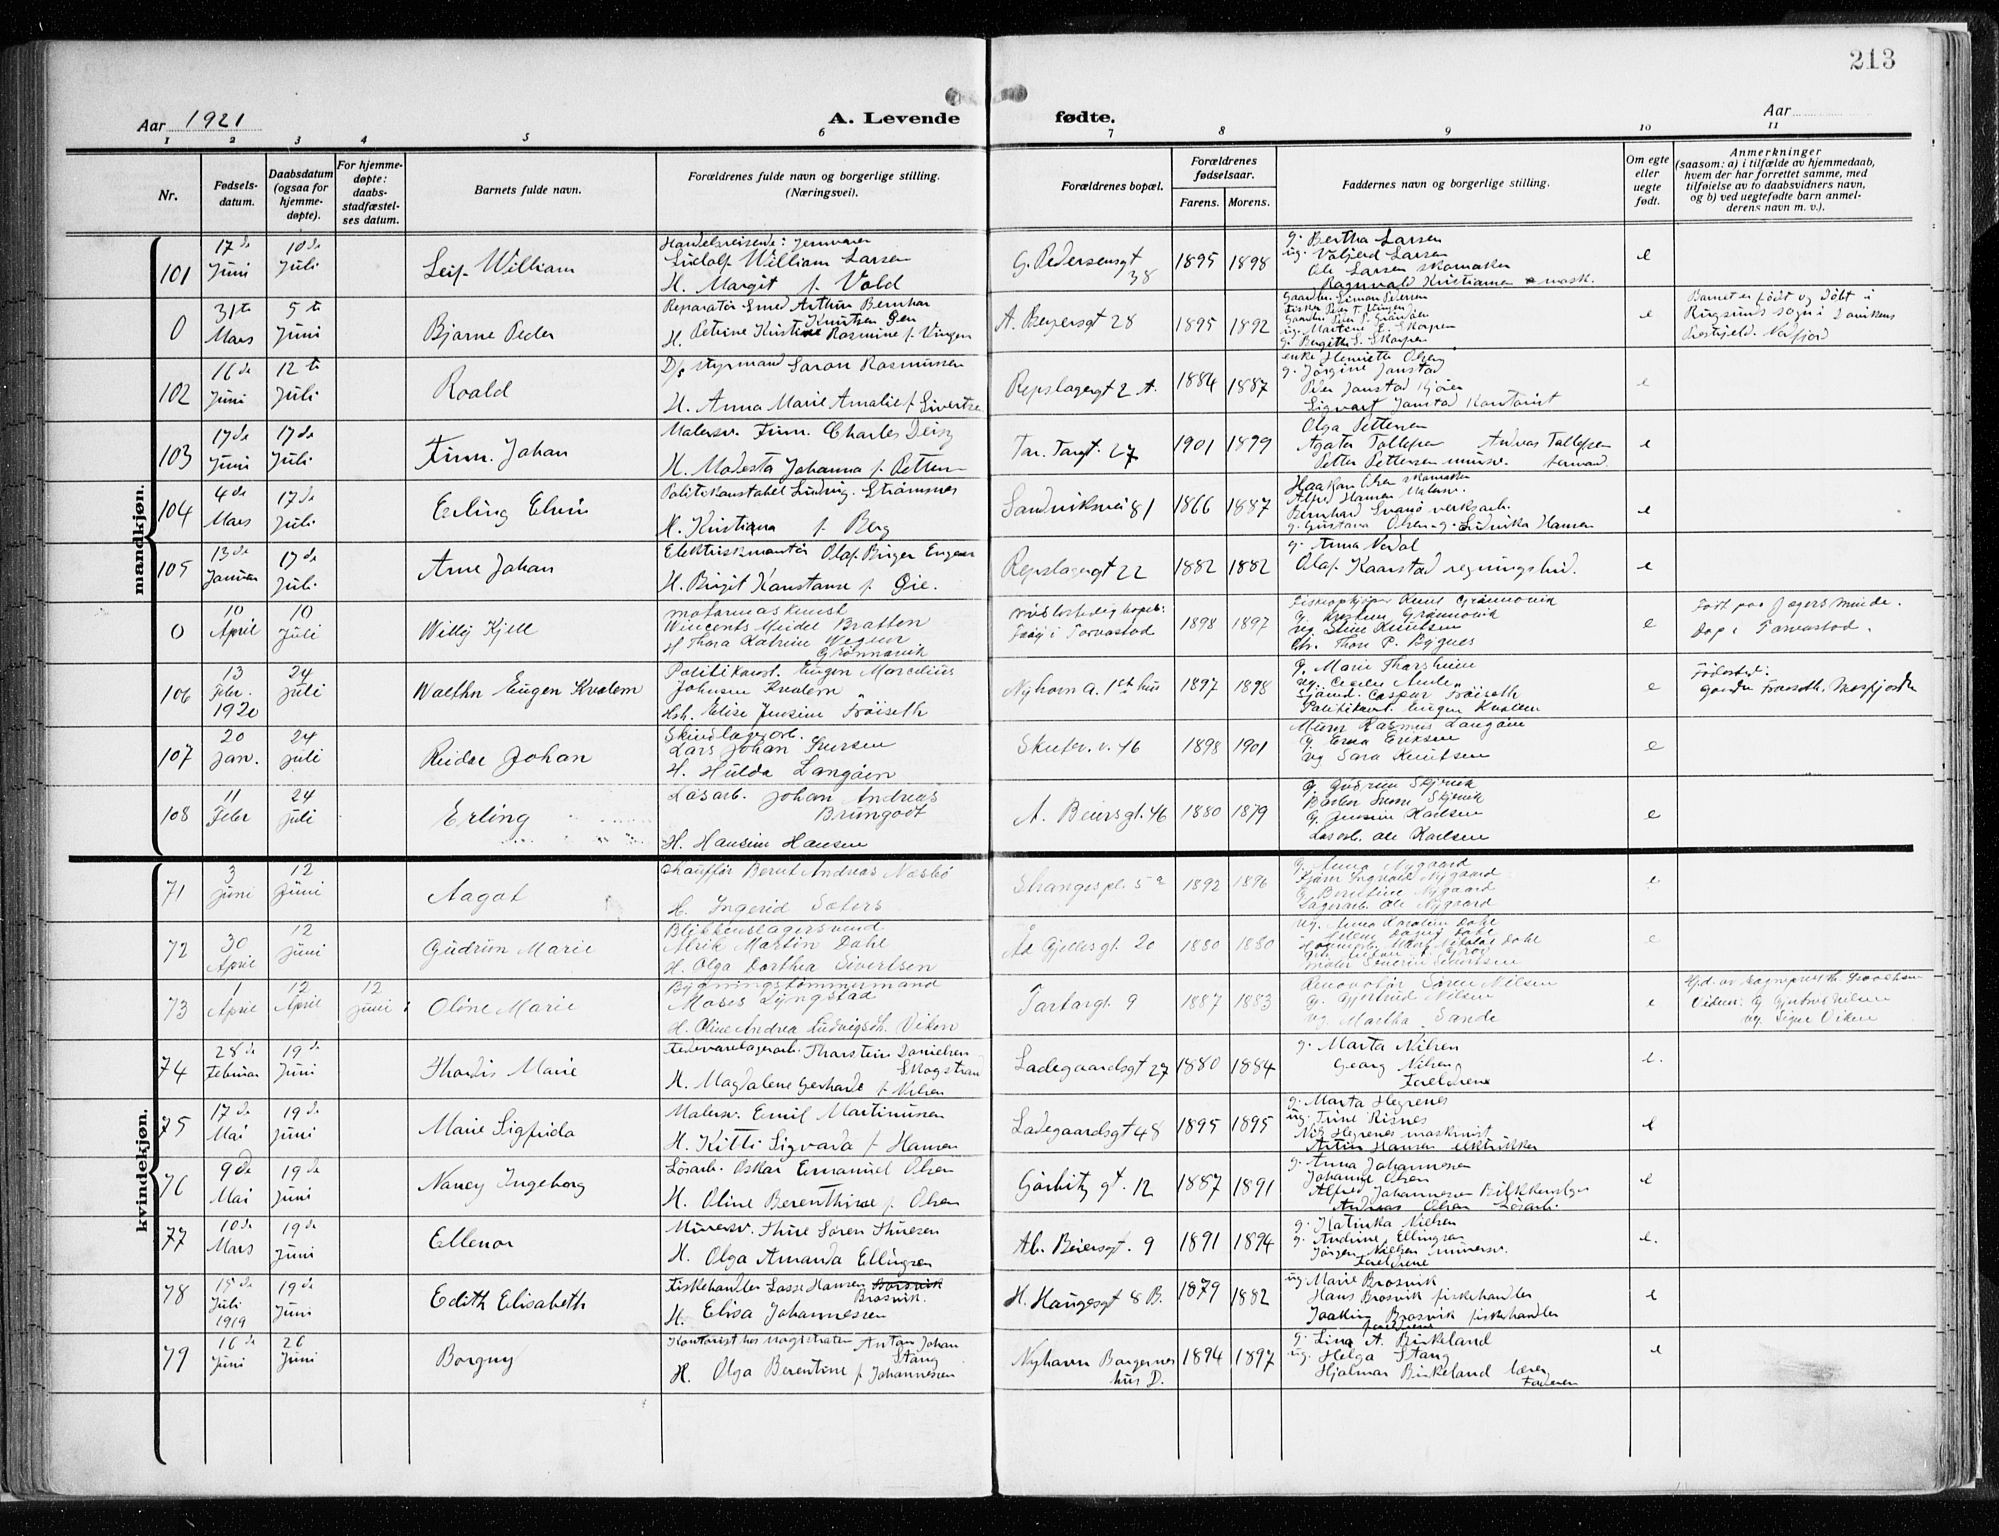 213
Aar 1921
A. Levende fødte.
Aar
1 2 3 4 5 6 7 8 9 10 11
Nr.
Fødsels-
datum.
Daabsdatum
(ogsaa for
hjemme-
døpte).
For hjemme-
døpte:
daabs-
stadfæstel-
ses datum.
Barnets fulde navn.
Forældrenes fulde navn og borgerlige stilling.
(Næringsvei).
Forældrenes bopæl.
Forældrenes
fødselsaar.
Farens. Morens.
Faddernes navn og borgerlige stilling.
Om egte
eller
uegte
født.
Anmerkninger
(saasom: a) i tilfælde av hjemmedaab,
hvem der har forrettet samme, med
tilføielse av to daabsvidners navn,
og b) ved uegtefødte barn anmel-
derens navn m. v.).
mandkjøn.
101 17de Juni 10de Juli Leif William
Handelsreisende: Jernvarer
Ludolf William Larsen
H. Margit f. Vold
G. Pedersensgt 38 1895 1898
g. Bertha Larsen
ug. Valfred Larsen
Ole Larsen skomaker
Ragnvald Kristiansen mask.
e
0 31te Mars 5te Juni Bjarne Peder
Reparatør Arthur Bernhar
Knutsen
H. Petrine Kristine Rasmine f. Vingen
A. Beyersgt 28 1895 1892
Gaardbr. Simon Pedersen
Fisker Peder T. Vingen
ug. Martine E. Skorpen
g. Bergithe S. Skorpen
e
Barnet er født og døbt i
Rugsund sogn i Davikens
Prestegjeld. Nordfjord
102 16de Juni 12te Juli Roald
D/s styrmand Søron Rasmussen
H. Anna Marie Amalie f. Sivertsen
Repslagergt 2 A. 1884 1887
enke Henriette Olsen
g. Jørgine Janstad
Peder Janstad
Sigvart Janstad Kontorist
e
103 17de Juni 17de Juli Finn Johan
Malersv. Finn Charles
H. Modesta Johanna f. Petters
Tar. Targt. 27 1901 1899
Olga Pettersen
Agater Tollefsen Andreas Tollefsen
Petter Pettersen mursv.
e
104 4de Mars 17de Juli Erling Elvin
Politikonstabel Ludvig Strømsnes
H. Kristiana f. Berg
Sandviksvei 81 1866 1887
Haakon Olsen skomaker
Alfred Hansen Malersv.
Bernhard Svanø verksarb.
g. Gustava Olsen g. Ludvikke Hansen
e
105 13de Januar 17de Juli Arne Johan
Elektriskmontør Olaf Birger Engen
H. Birgit Konstanse f. Øie.
Repslagergt 22 1882 1882
g. Anna Nerdal
Olaf Kaarstad regningsbud.
e
0 10 April 10 Juli Willy Kjell
motormaskinist
Vincents Meidel Bratten
H Thora Katrine Wegner
Grönnevik
midlertidig bopæl:
Feøy i Torvastad 1898 1897
Fiskeopkjøper Knut Grønnevik
ug Stine Knutsen
e
Født paa Jægersminde.
Døp. i Torvastad.
106 13 Febr. 1920 24 Juli Walther Eugen Kvalem
Politikonst. Eugen Marcelius
Johnsen Kvalem
Hst. Elise Jensine Frøiseth
Nyhavn a. 1ste hus 1897 1898
g. Marie Tharsheim
ug. Cecilie
Sjømd. Caspar Frøiseth
Politikonst. Eugen Kvalem
e
Fødested:
gaarden Frøiseth, Masfjorden
107 20 Jan. 24 Juli Reidar Johan
Skindlagerarb.
Lars Johan Iversen
H. Hulda Langøen
Skutev. v. 46 1898 1901
Murer Rasmus Langøen
g. Erna Eriksen
ug Sara Knutsen
e
108 11 Febr 24 Juli Erling
Løsarb. Johan Andreas
Brungodt
H. Hansine Hansen
A. Beiersgt. 46 1880 1879
g. Gudrun Skjervik
g. Jensine Karlsen
Løsarb. Ole Karlsen
e
kvindekjøn.
71 3 Juni 12 Juni Aagot
Chauffør Bernt Andreas Næsbø
H. Ingerid Sæters
Strangespl. 5a 1892 1896
g. Anna Nygaard
Ingvald Nygaard
g. Berntine Nygaard
Lagerarb. Ole Nygaard
e
72 30 April 12 Juni Gudrun Marie
Blikkenslagersvend
Alrik Martin Dahl
H. Olga Dorthea Sivertsen
Aa Gjellesgt 20 1880 1880
ug. Anna Karoline Dahl
Maler Severin Sivertsen
e
73 1 April 12 April 12 Juni Oline Marie
Bygningstømmermand
Moses Lyngstad
H. Oline Andrea Ludvigsdt. Viken
Tartargt 9 1887 1883
Renovatør Søren Nilsen
g. Gjertrud Nilsen
ug. Martha Sande
e
Hjd. av Sogneprest
Vidner: g Gjertrud Nilsen
ug. Signe Viken
74 28de Februar 19de Juni Thordis Marie
Fedevarelagerarb. Tharstein Danielsen
Skogstran
H. Magdalene Gerharde f. Nilsen
Ladegaardsgt 27 1880 1884
g. Marta Nilsen
Georg Nilsen
Foreldrene
e.
75 17de Mai 19de Juni Marie Sigfrida
Malersv. Emil Martinussen
H. Kitti Sigvarda f. Hansen
Ladegaardsgt 48 1895 1895
g. Marta Hegrenes
ug. Trine Risnes
Nils Hegrenes maskinist
Artur Hansen elektrikker
e
76 9de Mai 19de Juni Nancy Ingeborg
Løsarb. Oskar Emanuel Olsen
H. Oline Berenthine f. Olsen
Gørbitz gt. 12 1887 1891
g. Anna Johannesen
Johanne Olsen
Alfred Johannesen Blikkenslager
Andreas Olsen Løsarb.
e
77 10de Mars 19de Juni Ellenor
Murersv. Thure Søren Thuesen
H. Olga Amanda Ellingsen
Ab. Beiersgt. 9 1891 1894
g. Katinka Nielsen
g. Andrine Ellingsen
Jørgen Nielsen murersv.
Foreldrene
e.
78 15de Juli 1919 19de Juni Edith Elisabeth
Fiskehandler Lasse Hansen Borsvik
Brosvik.
H. Elisa Johannessen
H. Haugesgt 8 B. 1879 1882
ug Marie Brosvik
Hans Brosvik fiskehandler
Joakim Brosvik fiskehandler
foreldrene
e
79 16de Juni 26 Juni Borgny
Kontorist hos magistraten Anton Johan
Stang
H. Olga Berentine f. Johannessen
Nyhavn Borgernes
hus D. 1894 1897
g. Lina A. Birkeland
ug. Helga Stang
Hjalmar Birkeland lærer
Faderen
e